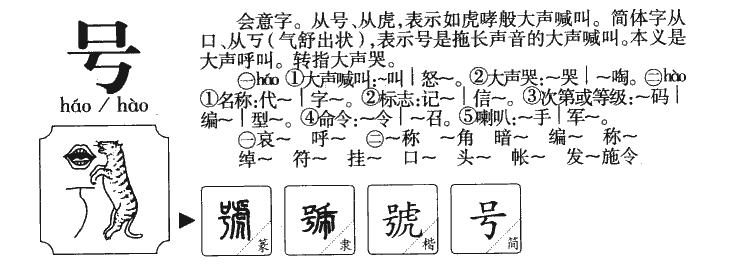 号
háo / hào
会意字。从号、从虎,表示如虎哮般大声喊叫。简体字从
口、从丂(气舒出状),表示号是拖长声音的大声喊叫。本义是
大声呼叫。转指大声哭。
㊀háo ①大声喊叫:~叫│怒~。②大声哭:~哭│~啕。㊁hào
①名称:代~│字~。②标志:记~│信~。③次第或等级:~码│
编~│型~。④命令:~令│~召。⑤喇叭:~手│军~。
㊀哀~ 呼~ ㊁~称 ~角 暗~ 编~ 称~
绰~ 符~ 挂~ 口~ 头~ 帐~ 发~施令
號 篆
號 隶
號 楷
号 简